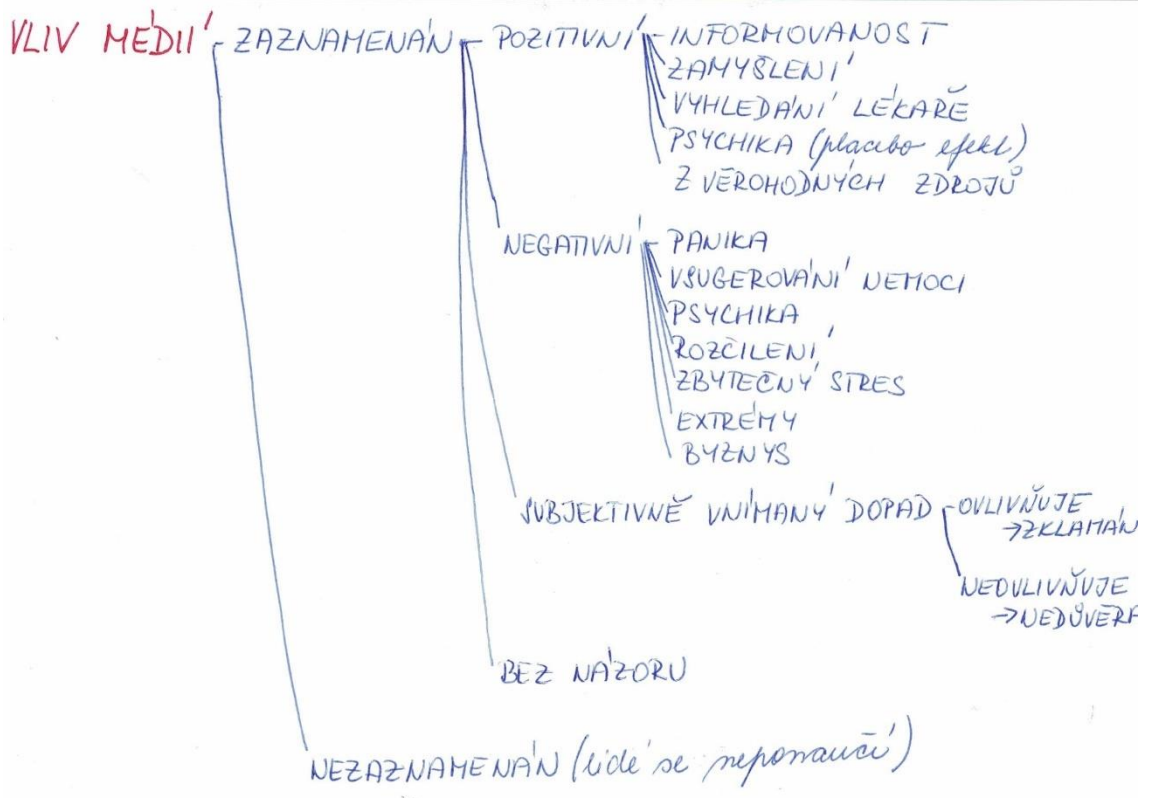 VLIV MÉDIÍ ZAZNAMENÁN POZITIVNÍ INFORMOVANOST
ZAMYŠLENÍ
VYHLEDÁNÍ LÉKAŘE
PSYCHIKA (placebo efekt)
Z VĚROHODNÝCH ZDROJŮ
NEGATIVNÍ PANIKA
VSUGEROVÁNÍ NEMOCI
PSYCHIKA
ROZČILENÍ
ZBYTEČNÝ STRES
EXTRÉMY
BYZNYS
SUBJEKTIVNĚ VNÍMANÝ DOPAD OVLIVŇUJE
→ZKLAMÁN
NEOVLIVŇUJE
→NEDŮVĚRA
BEZ NÁZORU
NEZAZNAMENÁN (lidé se neponaučí)